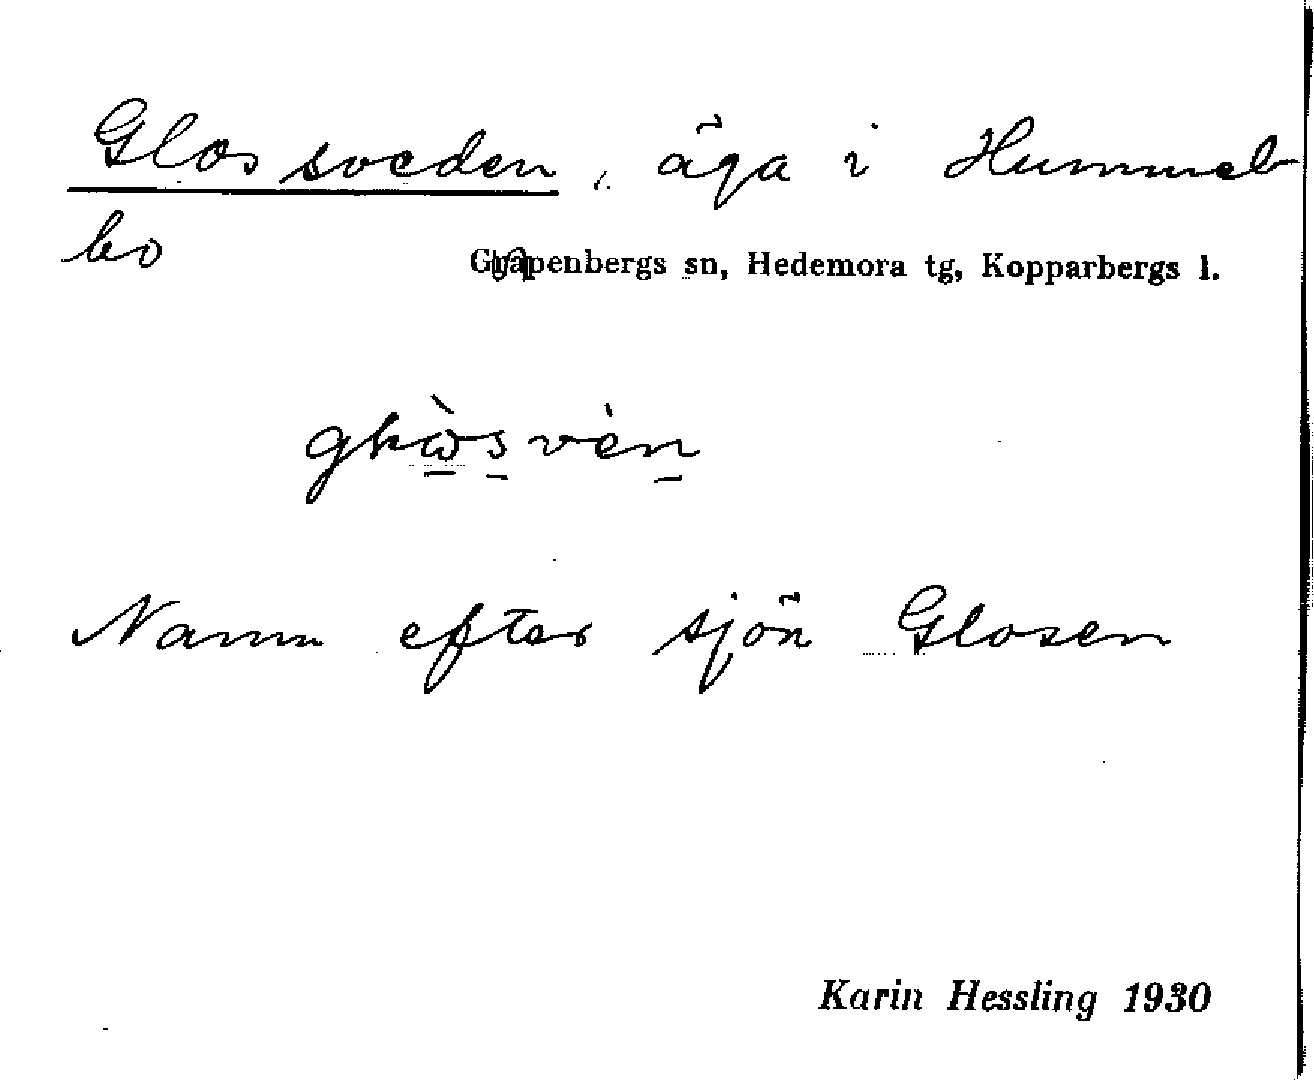 Glossveden, äga i Hummel-
bo
Grapenbergs sn, Hedemora tg, Kopparbergs l.
Namn efter sjön Glosen
Karin Hessling 1930